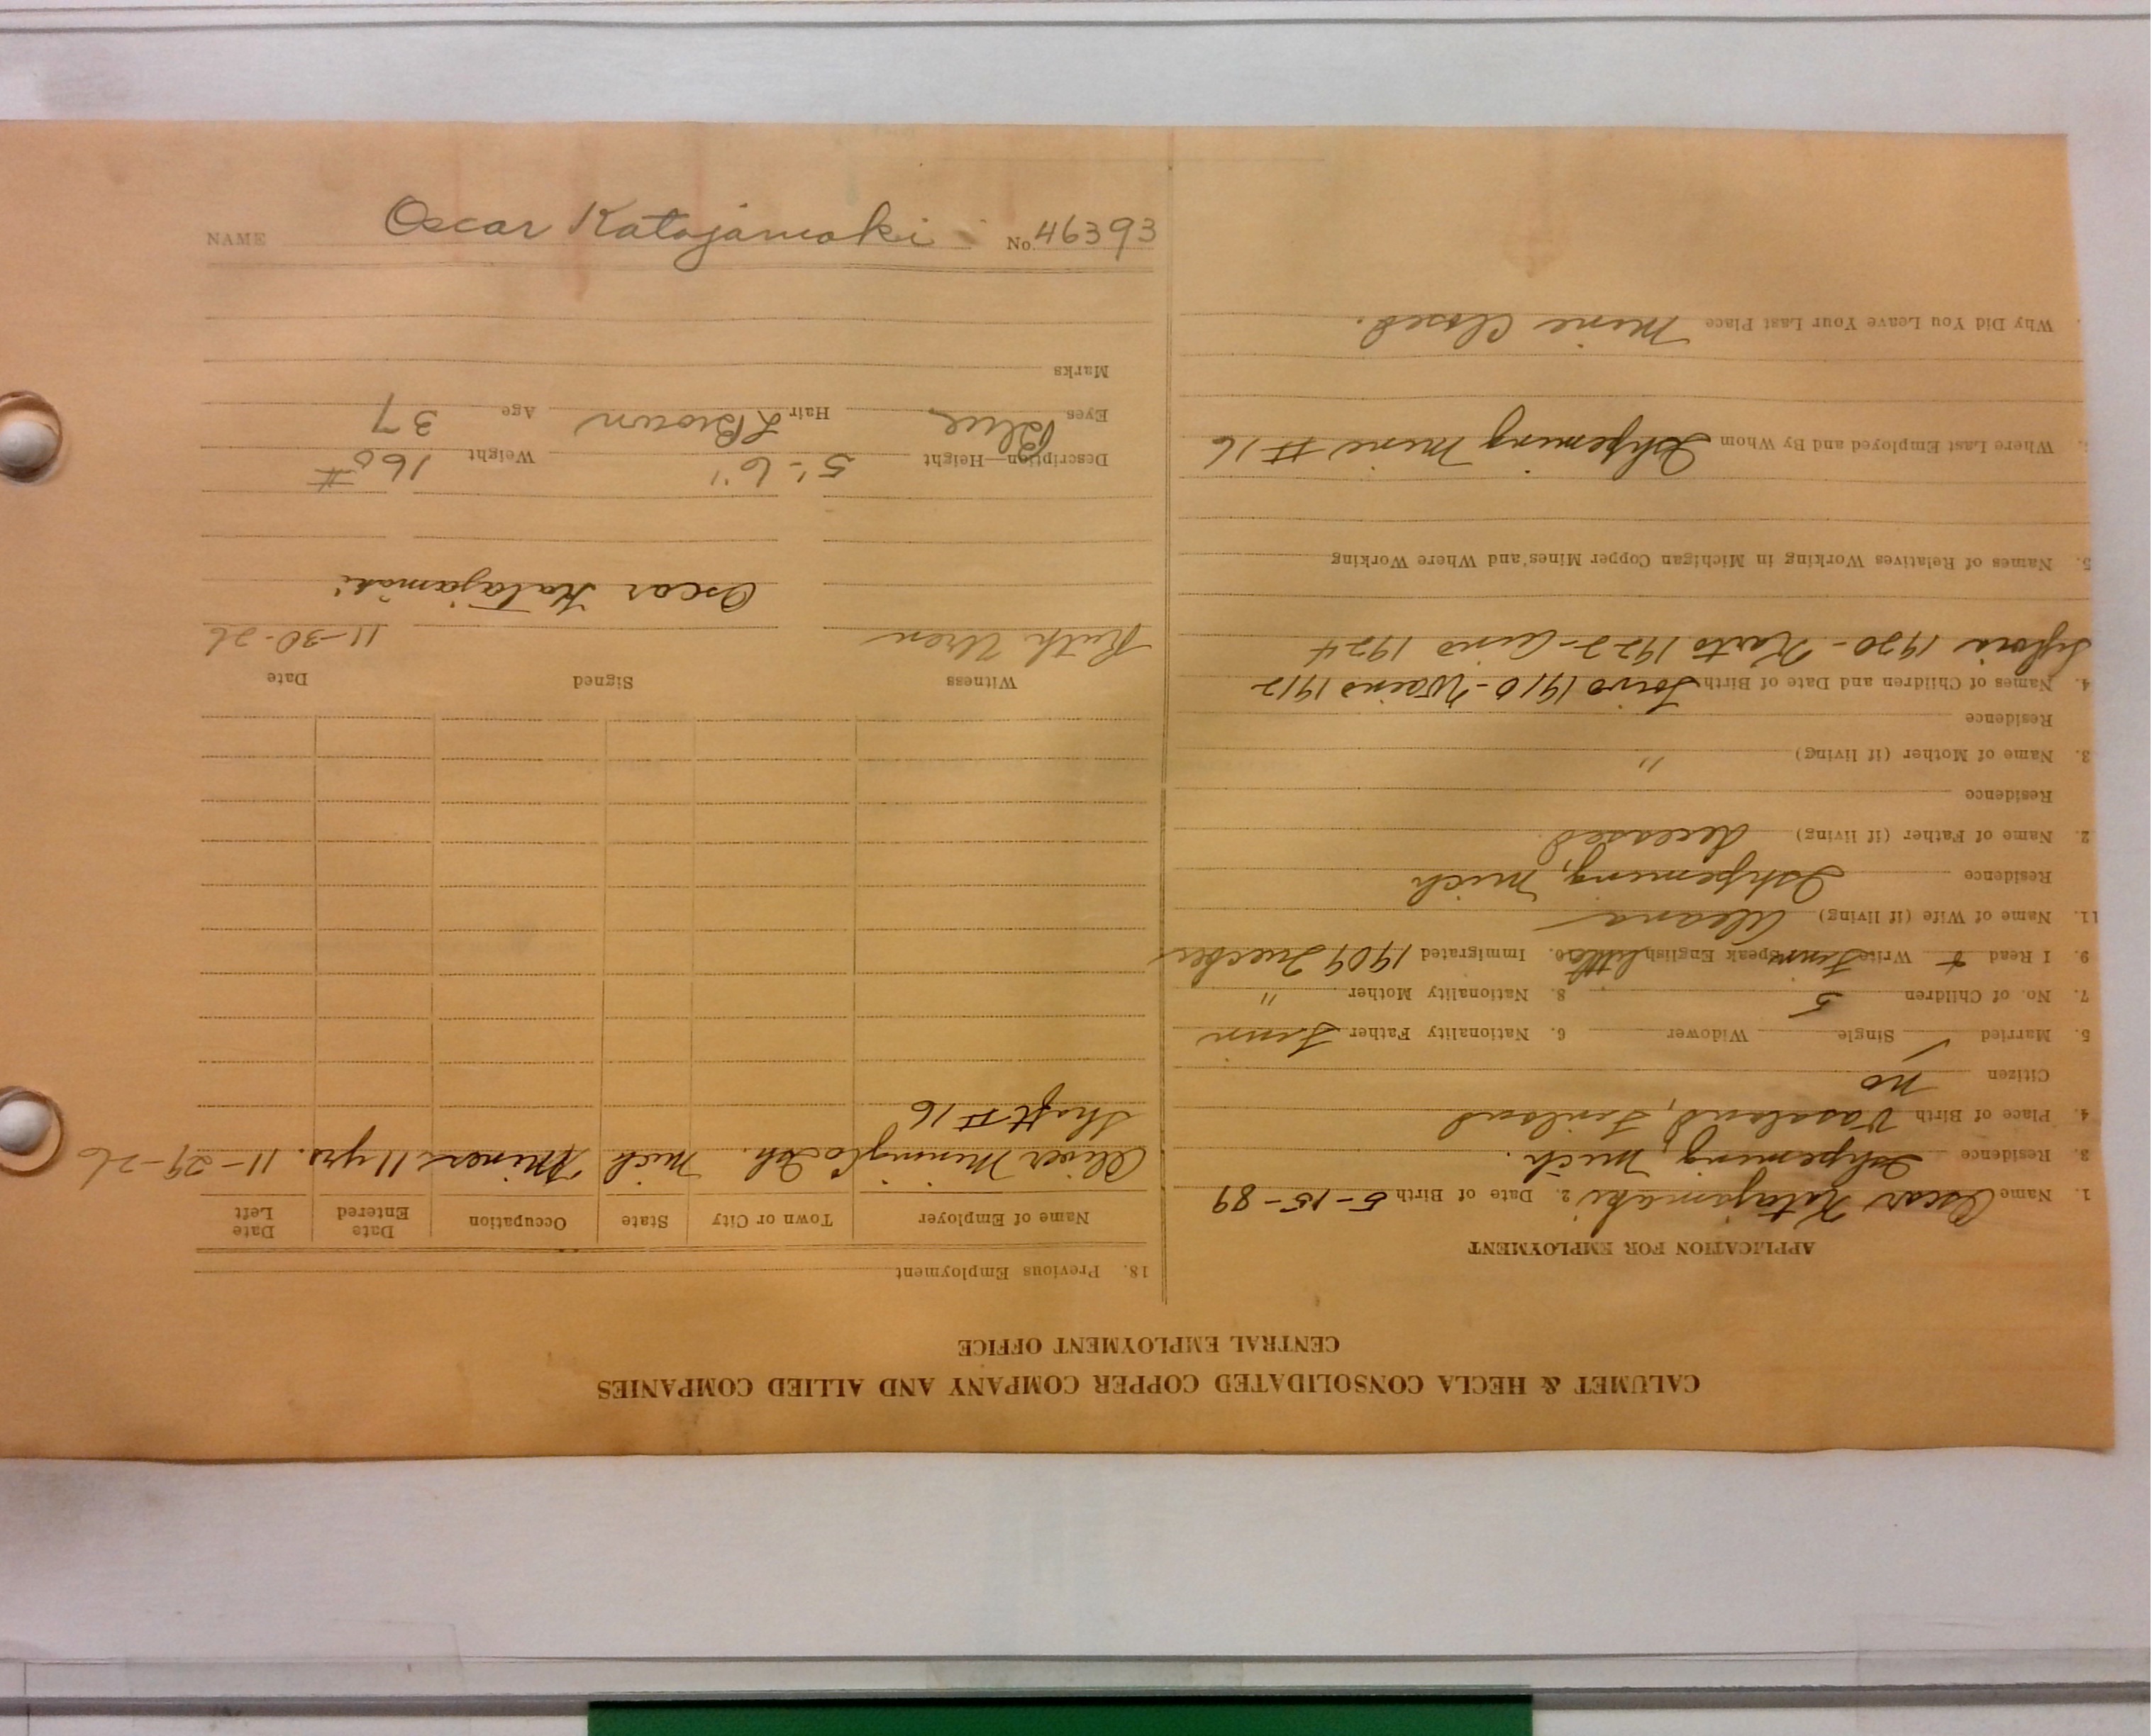 CALUMET & HECLA CONSOLIDATED COPPER COMPANY AND ALLIED COMPANIES
CENTRAL EMPLOYMENT OFFICE
APPLICATION FOR EMPLOYMENT
1. Name Oscar Katajamaki 2. Date of Birth 5-15-89
3. Residence Ishpeming, Mich.
4. Place of Birth Vasaland, Finland
Citizen no
5. Married ✓ Single Widower 6. Nationality Father Finn
7. No. of Children 5 8. Nationality Mother "
9. I Read & Write Finn Speak English little 10. Immigrated 1909 Quebec
11. Name of Wife (if living)
Residence Ishpeming, Mich
2. Name of Father (if living) decesed.
Residence
3. Name of Mother (if living) "
Residence
4. Names of Children and Date of Birth Toivo 1910 - Waino 1912
Sylvia 1920 - 1922 - 1924
5. Names of Relatives Working in Michigan Copper Mines and Where Working
Where Last Employed and By Whom Ishpeming Mine # 16
Why Did You Leave Your Last Place Mine Closed.
18. Previous Employment
Name of Employer Town or City State Occupation Date Entered Date Left
Oliver Mining Co Ish. Mich Miner 11 yrs. 11-29-26
Shaft # 16
Witness Signed Date
Ruth Uren Oscar Katajamäki 11-30-26
Description—Height 5'-6" Weight 160 #
Eyes Blue Hair L Brown Age 37
Marks
NAME Oscar Katajamaki No. 46393